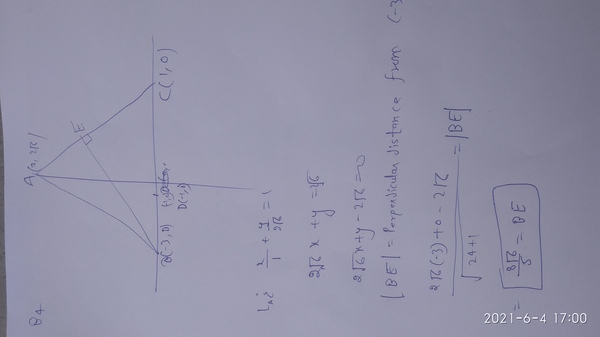 Q4
A(0, 2√6)
E
B(-3, 0)
D(-1, 0)
C(1, 0)
L_AC: x/1 + y/2√6 = 1
2√6 x + y = 2√6
2√6 x + y - 2√6 = 0
|BE| = Perpendicular distance from (-3
2√6(-3) + 0 - 2√6 / √24+1 = |BE|
= 8√6/5 = BE
2021-6-4 17:00